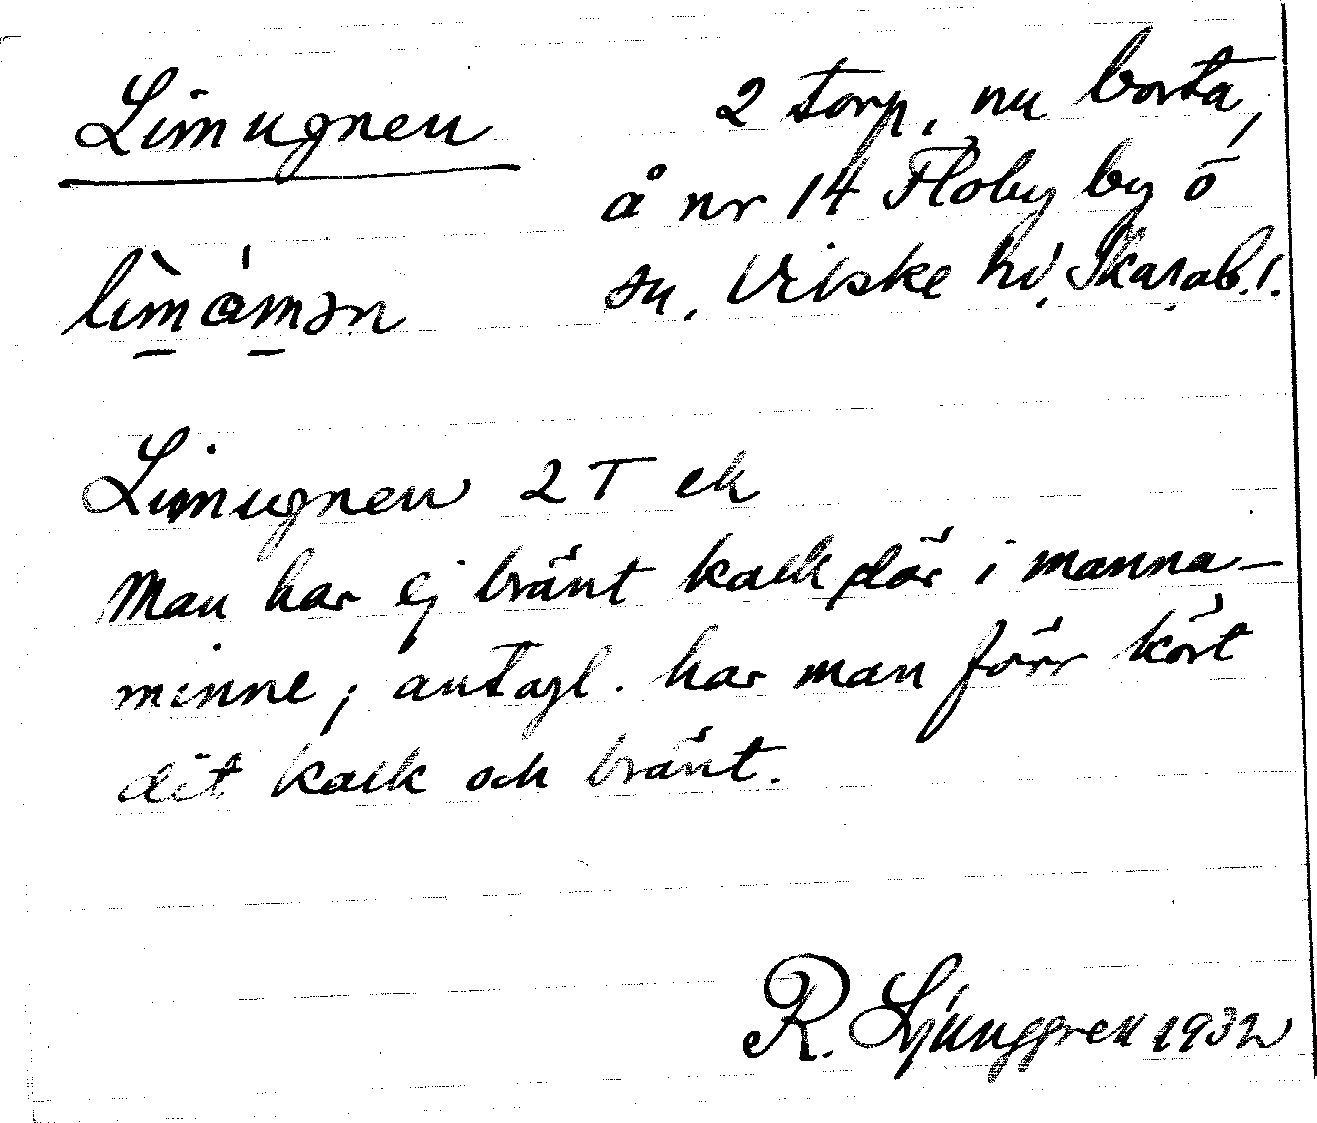 Limugnen
2 torp, nu borta,
å nr 14 Floby by o
sn, Vilske hd, Skarab. l.
Limugnen 2 T ek
Man har ej bränt kalk där i manna-
minne; antagl. har man förr kört
dit kalk och bränt.
R. Ljunggren 1932